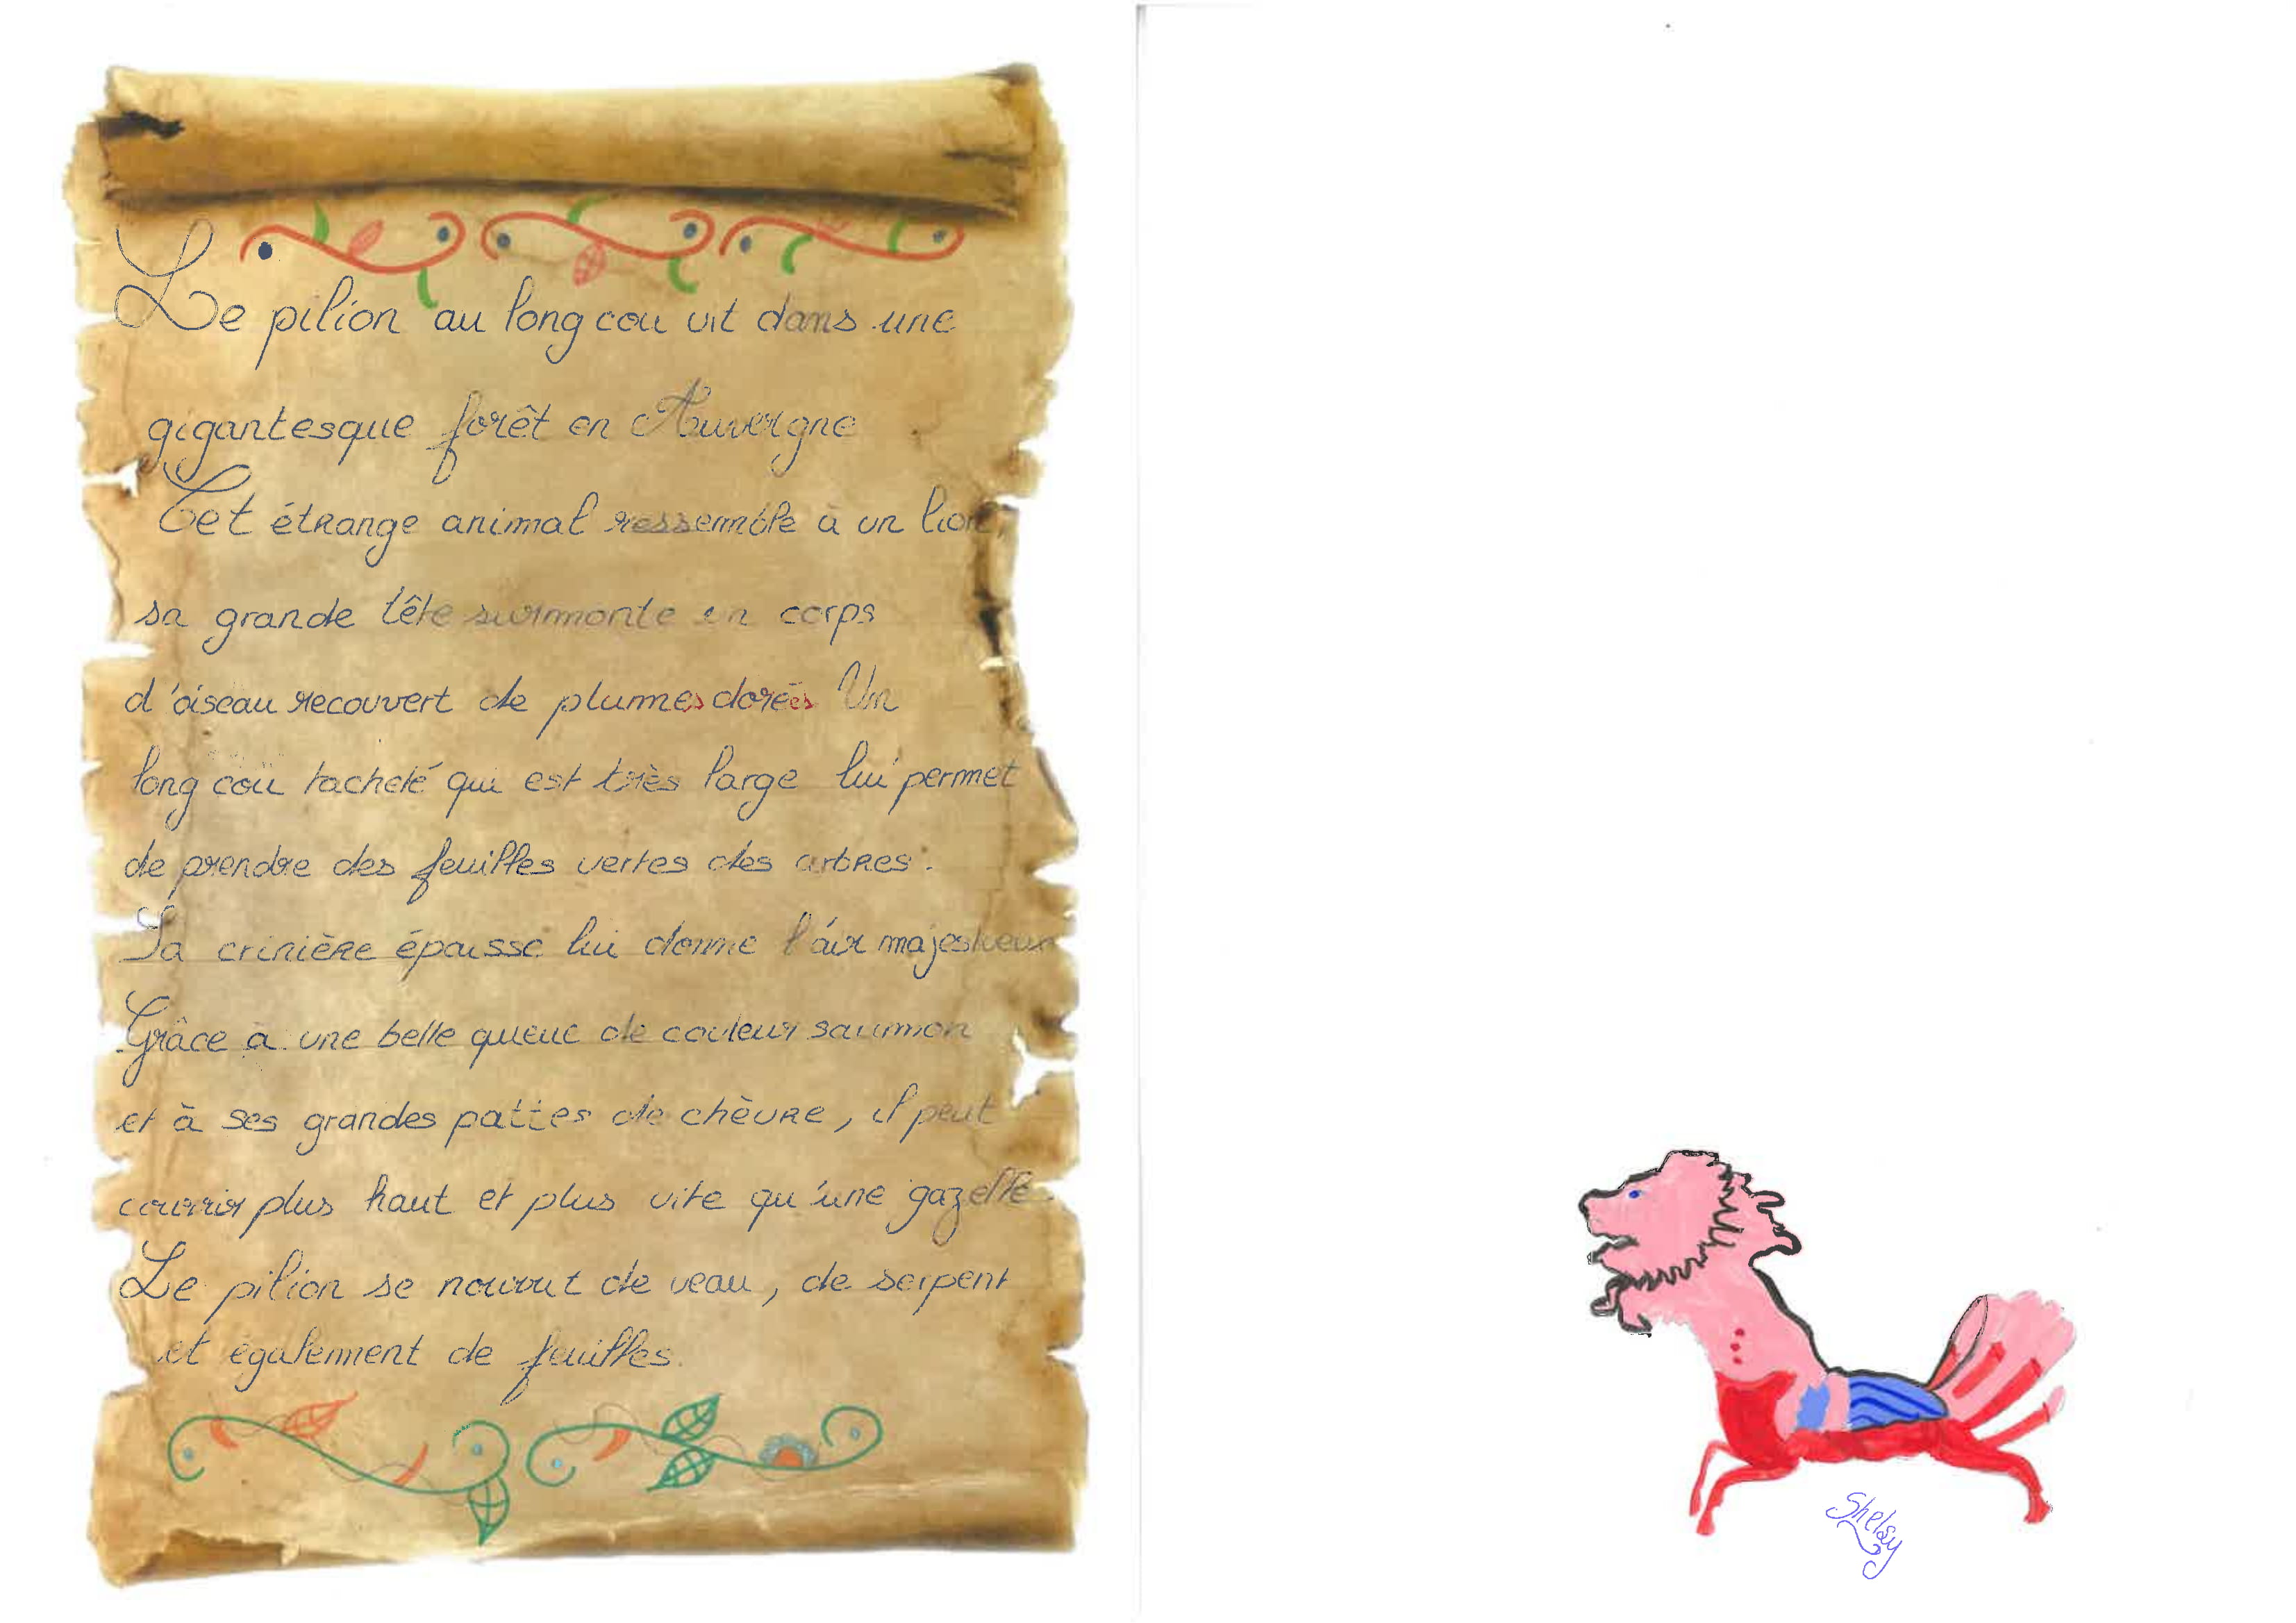 Le pilion au long cou vit dans une
gigantesque forêt en Auvergne
Cet étrange animal ressemble à un lion,
sa grande tête surmonte un corps
d'oiseau recouvert de plumes dorées Un
long cou tacheté qui est très large lui permet
de prendre des feuilles vertes des arbres.
Sa crinière épaisse lui donne l'air majestueux
Grâce à une belle queue de couleur saumon
et à ses grandes pattes de chèvre, il peut
courrir plus haut et plus vite qu'une gazelle.
Le pilion se nourrit de veau, de serpent
et également de feuilles.
Shelsy